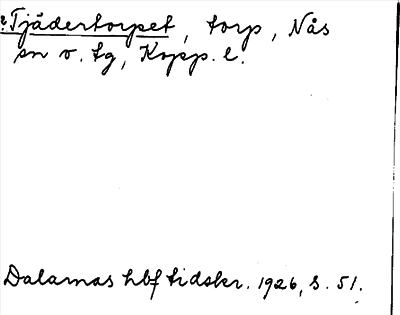 ?Tjädertorpet, torp, Nås
sn v. tg, Kopp. l.
Dalarnas hbf tidskr. 1926, s. 51.